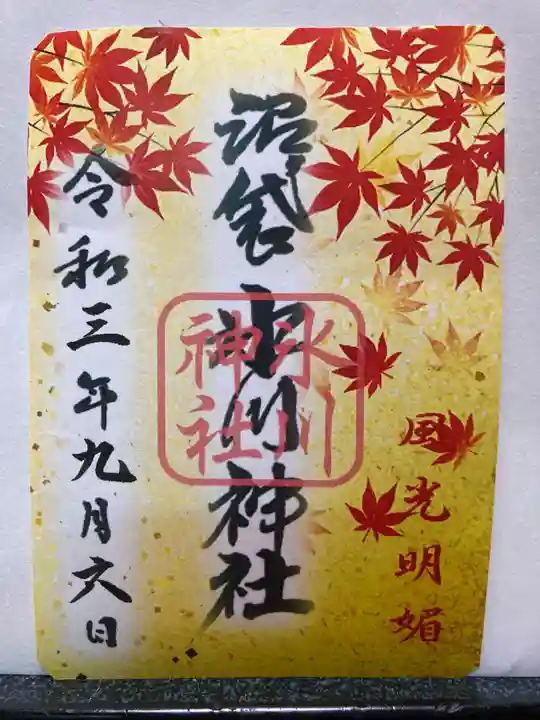 風光明媚
沼袋氷川神社
氷川
神社
令和三年九月六日